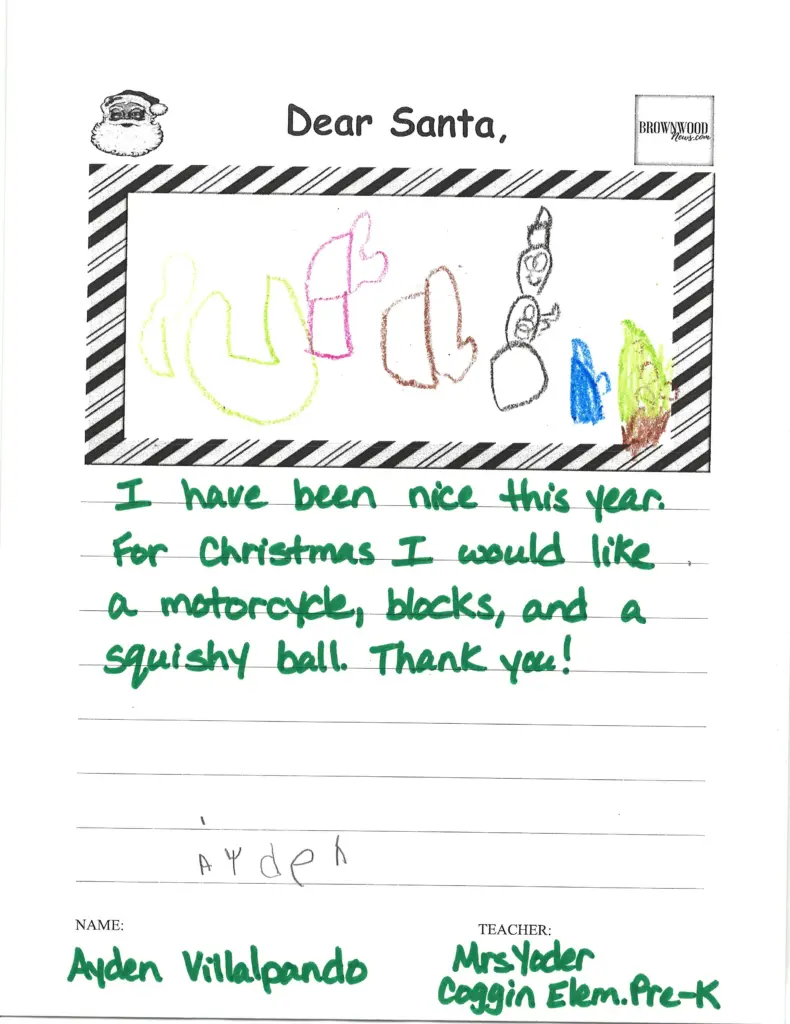 Dear Santa,
BROWNWOOD
News.com
I have been nice this year.
For Christmas I would like
a motorcycle, blocks, and a
squishy ball. Thank you!
Ayden
NAME:
TEACHER:
Ayden Villalpando
Mrs Yoder
Coggin Elem. Pre-K